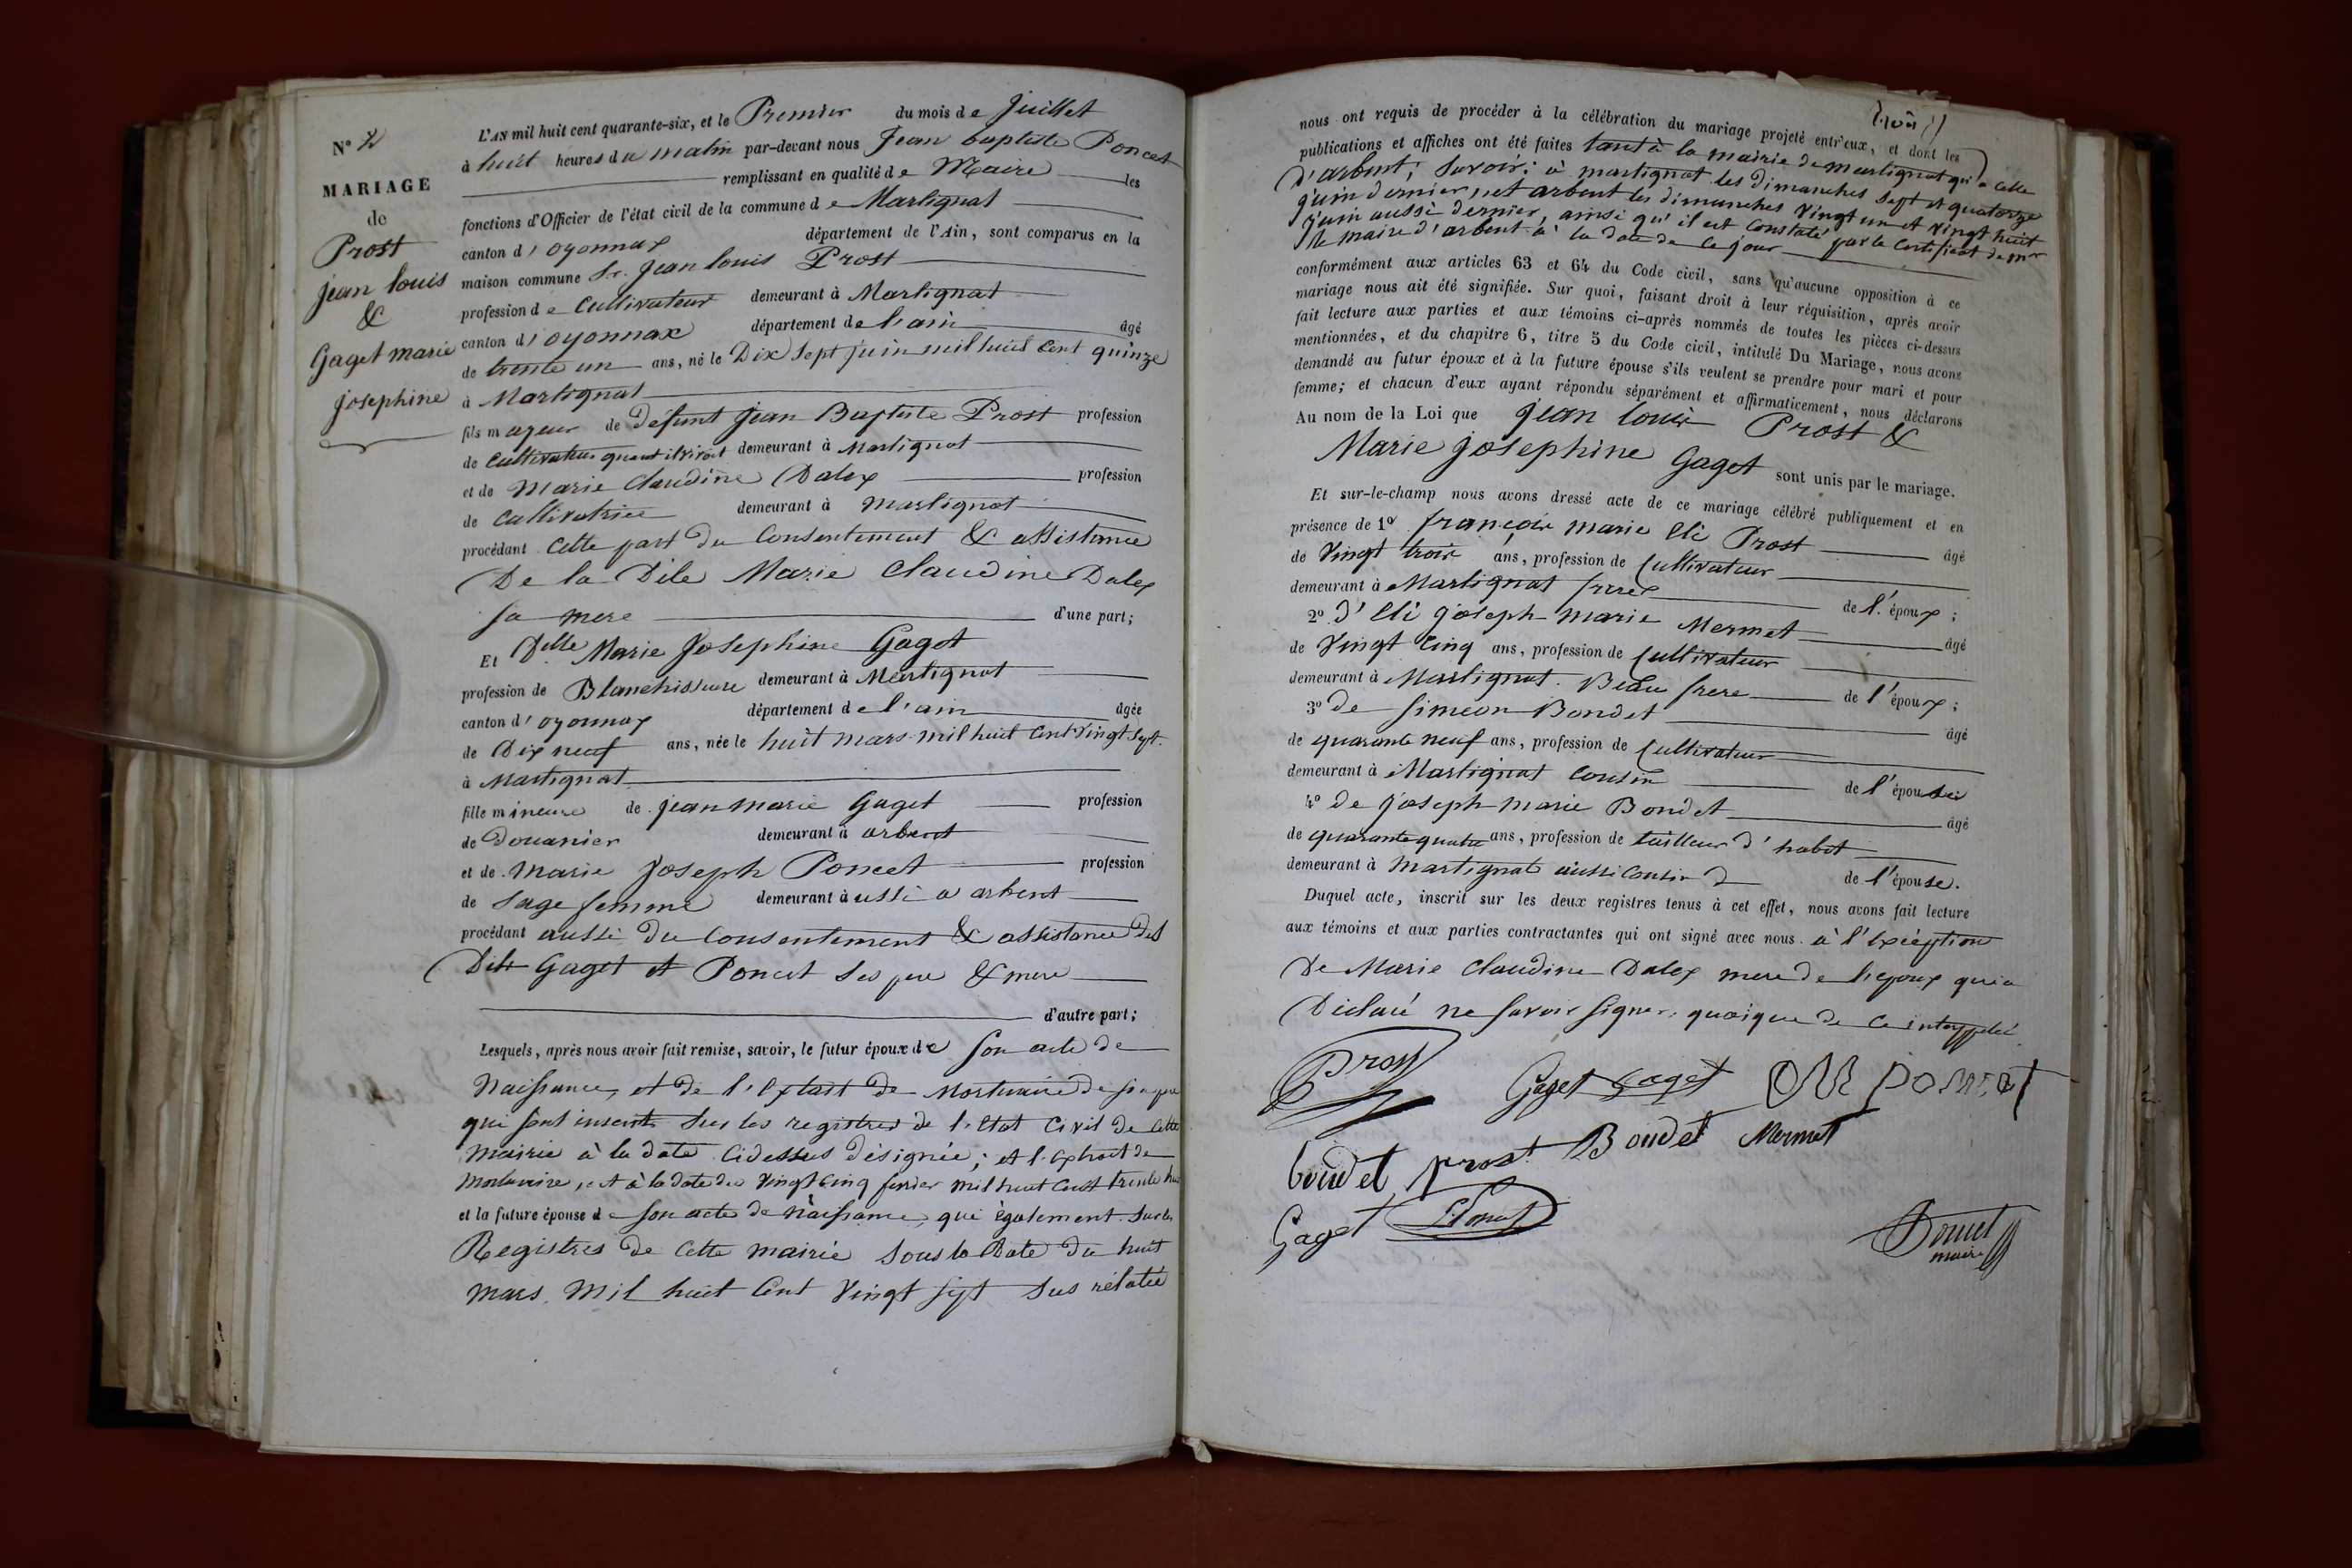 MARIAGE
de
Prost
jean louis
&
Gaget marie
josephine
L'AN mil huit cent quarante-six, et le Premier du mois de Juillet
à huit heures du matin par-devant nous Jean baptiste Poncet
remplissant en qualité de Maire les
fonctions d'Officier de l'état civil de la commune de Martignat
canton d'oyonnax département de l'Ain, sont comparus en la
maison commune Sr. Jean louis Prost
profession de Cultivateur demeurant à Martignat
canton d'oyonnax département de l'ain âgé
de trente un ans, né le Dix Sept juin mil huit Cent quinze
à Martignat
fils majeur de défunt Jean Baptiste Prost profession
de Cultivateur quant il vivoit demeurant à Martignat
et de Marie Claudine Dalex profession
de Cultivatrice demeurant à Martignat
procédant Cette part du Consentement & assistance
De la Dite Marie Claudine Dalex
sa mere d'une part;
Et Delle Marie Josephine Gaget
profession de Blanchisseuse demeurant à Martignat
canton d'oyonnax département de l'ain âgée
de Dix neuf ans, née le huit mars mil huit Cent Vingt Sept.
à Martignat
fille mineure de jean marie Gaget profession
de Douanier demeurant à arbent
et de marie Joseph Poncet profession
de Sage femme demeurant aussi a arbent
procédant aussi Du Consentement & assistance Des
Dits Gaget et Poncet Ses pere & mere
d'autre part;
Lesquels, après nous avoir fait remise, savoir, le futur époux de Son acte de
Naissance, et de l'Extrait de Mortuaire de
qui sont inscrits Sur les registres de l'Etat Civil de Cette
Mairie à la date Cidessus désignée; et l'extrait de
Mortuaire, est à la date du Vingt Cinq fevrier mil huit Cent trente
et la future épouse de Son acte de Naissance, qui également Sur les
Registres de Cette mairie Sous la Date du huit
mars mil huit Cent Vingt Sept Sus rélatée
nous ont requis de procéder à la célébration du mariage projeté entr'eux, et dont les
publications et affiches ont été faites tant à la mairie de martignat qu'a Celle
D'arbent; Savoir: à martignat les Dimanches Sept et quatorze
juin dernier, et arbent les dimanches Vingt un et Vingt huit
juin aussi dernier, ainsi qu'il est Constaté par le Certificat de Mr
le maire d'arbent à la date de Ce jour
conformément aux articles 63 et 64 du Code civil, sans qu'aucune opposition à ce
mariage nous ait été signifiée. Sur quoi, faisant droit à leur réquisition, après avoir
fait lecture aux parties et aux témoins ci-après nommés de toutes les pièces ci-dessus
mentionnées, et du chapitre 6, titre 5 du Code civil, intitulé Du Mariage, nous avons
demandé au futur époux et à la future épouse s'ils veulent se prendre pour mari et pour
femme; et chacun d'eux ayant répondu séparément et affirmativement, nous déclarons
Au nom de la Loi que Jean louis Prost &
Marie Josephine Gaget sont unis par le mariage.
Et sur-le-champ nous avons dressé acte de ce mariage célébré publiquement et en
présence de 1º françois marie Eli Prost âgé
de Vingt trois ans, profession de Cultivateur
demeurant à Martignat frere de l'époux;
2º D'Eli joseph marie Mermet âgé
de Vingt Cinq ans, profession de Cultivateur
demeurant à Martignat. Beau frere de l'époux;
3º De Simeon Bondet âgé
de quarante neuf ans, profession de Cultivateur
demeurant à Martignat Cousin de l'épouse
4º de Joseph Marie Bondet âgé
de quarante quatre ans, profession de tailleur d'habit
demeurant à Martignat aussi Cousin de l'épouse.
Duquel acte, inscrit sur les deux registres tenus à cet effet, nous avons fait lecture
aux témoins et aux parties contractantes qui ont signé avec nous à l'Exception
De Marie Claudine Dalex mere de l'epoux qui a
Déclaré ne Savoir Signer quoique de Ce interpellée
Prost Gaget Gaget Poncet
bondet prost Bondet Mermet
Gaget
Poncet
maire